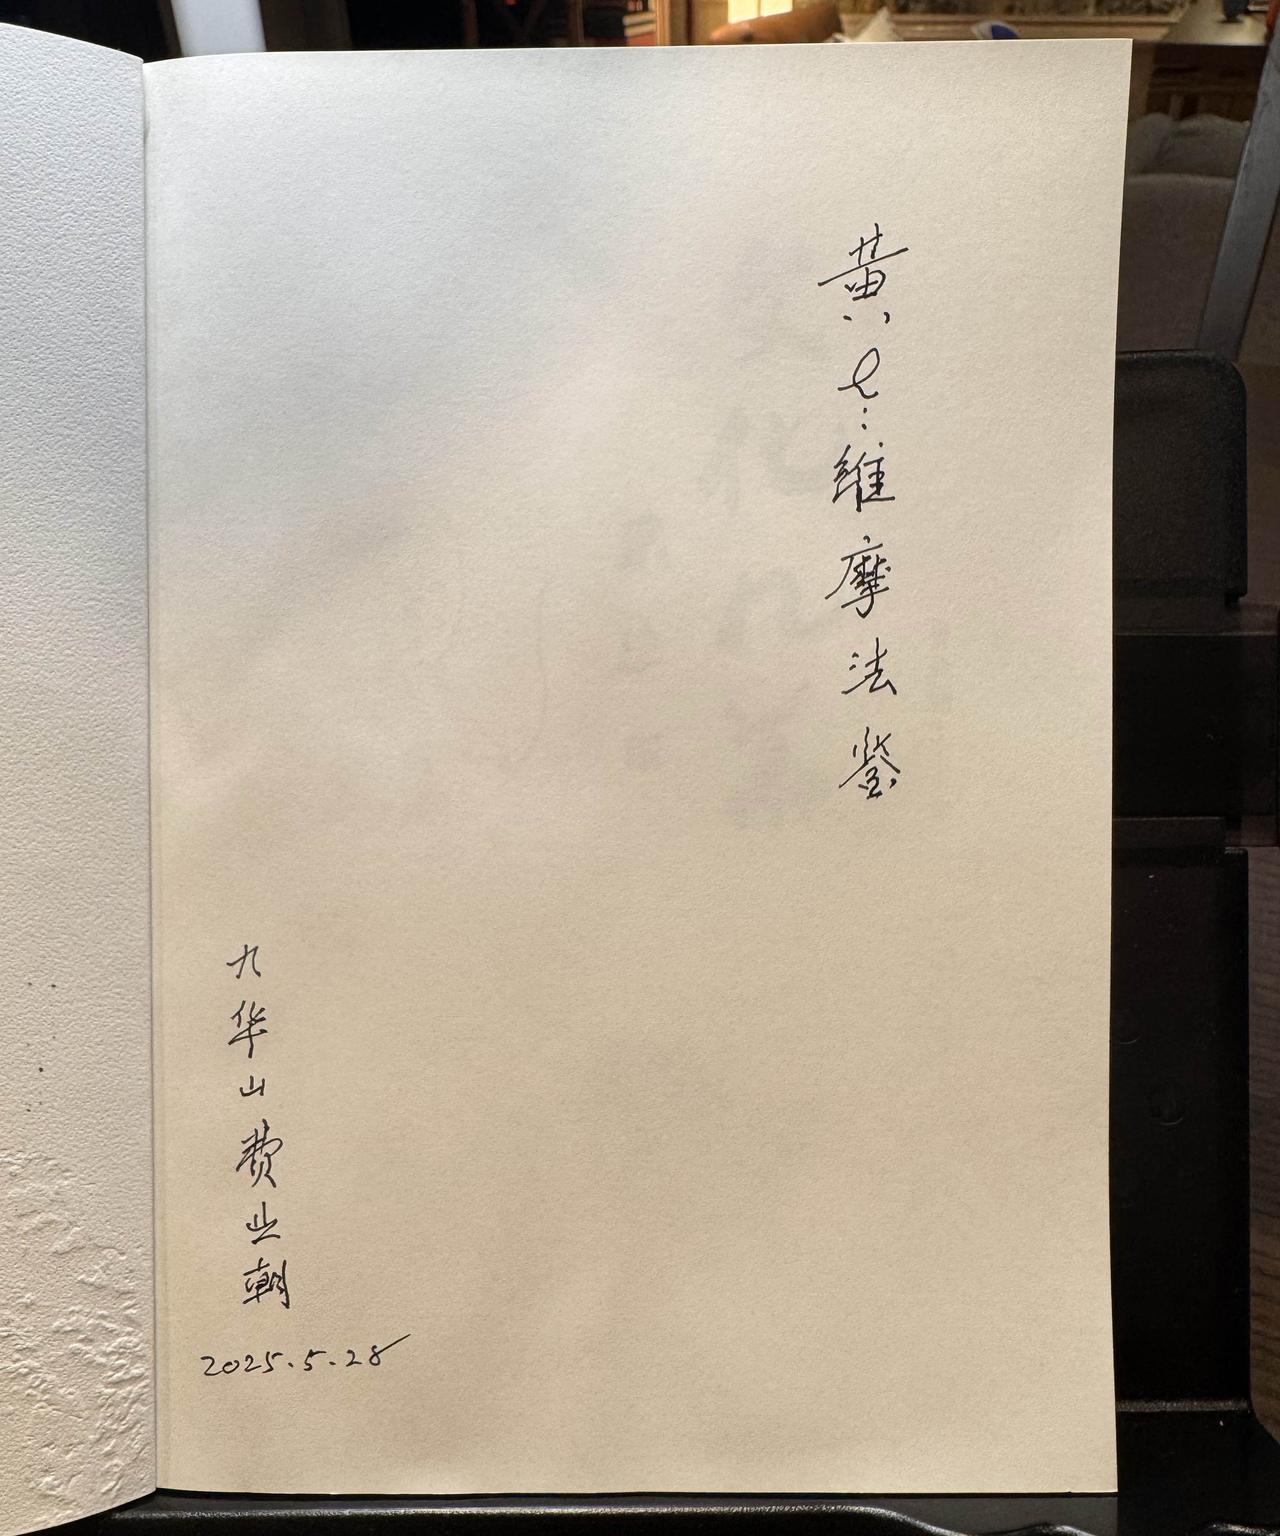 黄
維摩法鉴
九华山费业朝
2025.5.28